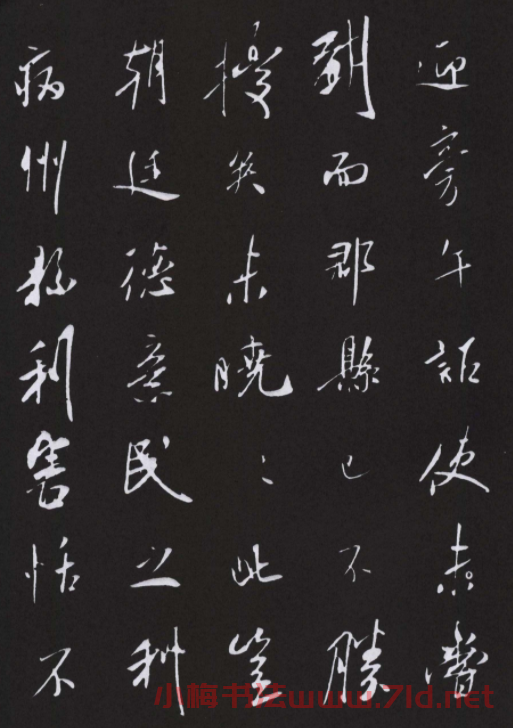 迎旁午詎使
而郡縣已不勝
擾矣未曉〻此豈
朝廷德意民之利
病州縣利害恬不
小梅书法www.7ld.net